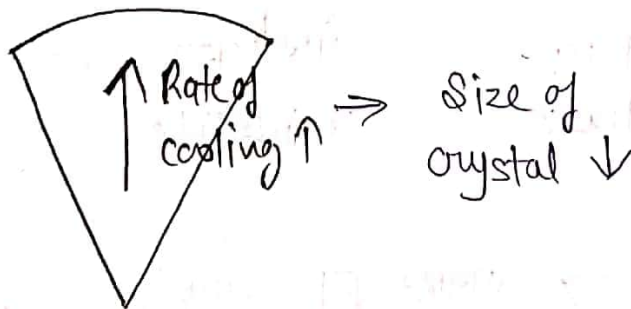 ↑ Rate of cooling ↑ → Size of crystal ↓